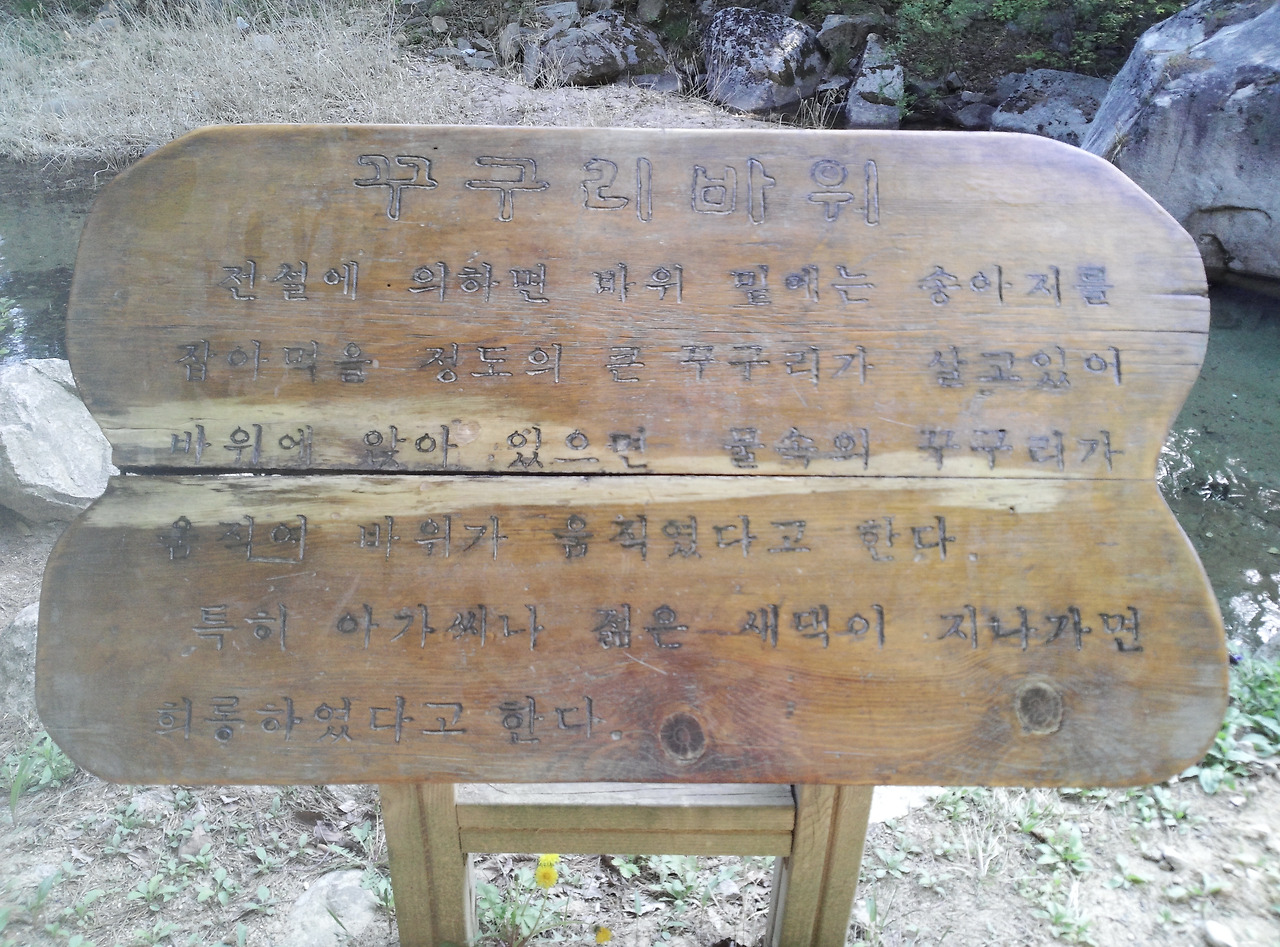 꾸구리바위
전설에 의하면 바위 밑에는 송아지를
잡아먹을 정도의 큰 꾸구리가 살고있어
바위에 앉아 있으면 물속의 꾸구리가
움직여 바위가 움직였다고 한다.
특히 아가씨나 젊은 새댁이 지나가면
희롱하였다고 한다.